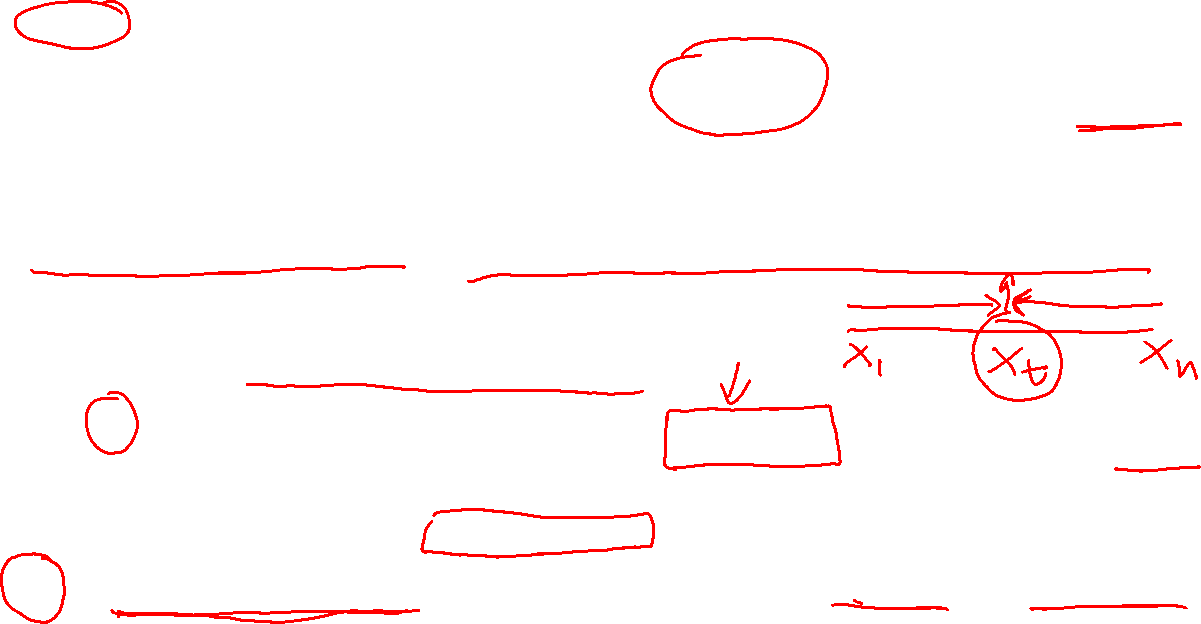 x₁ x_t x_n